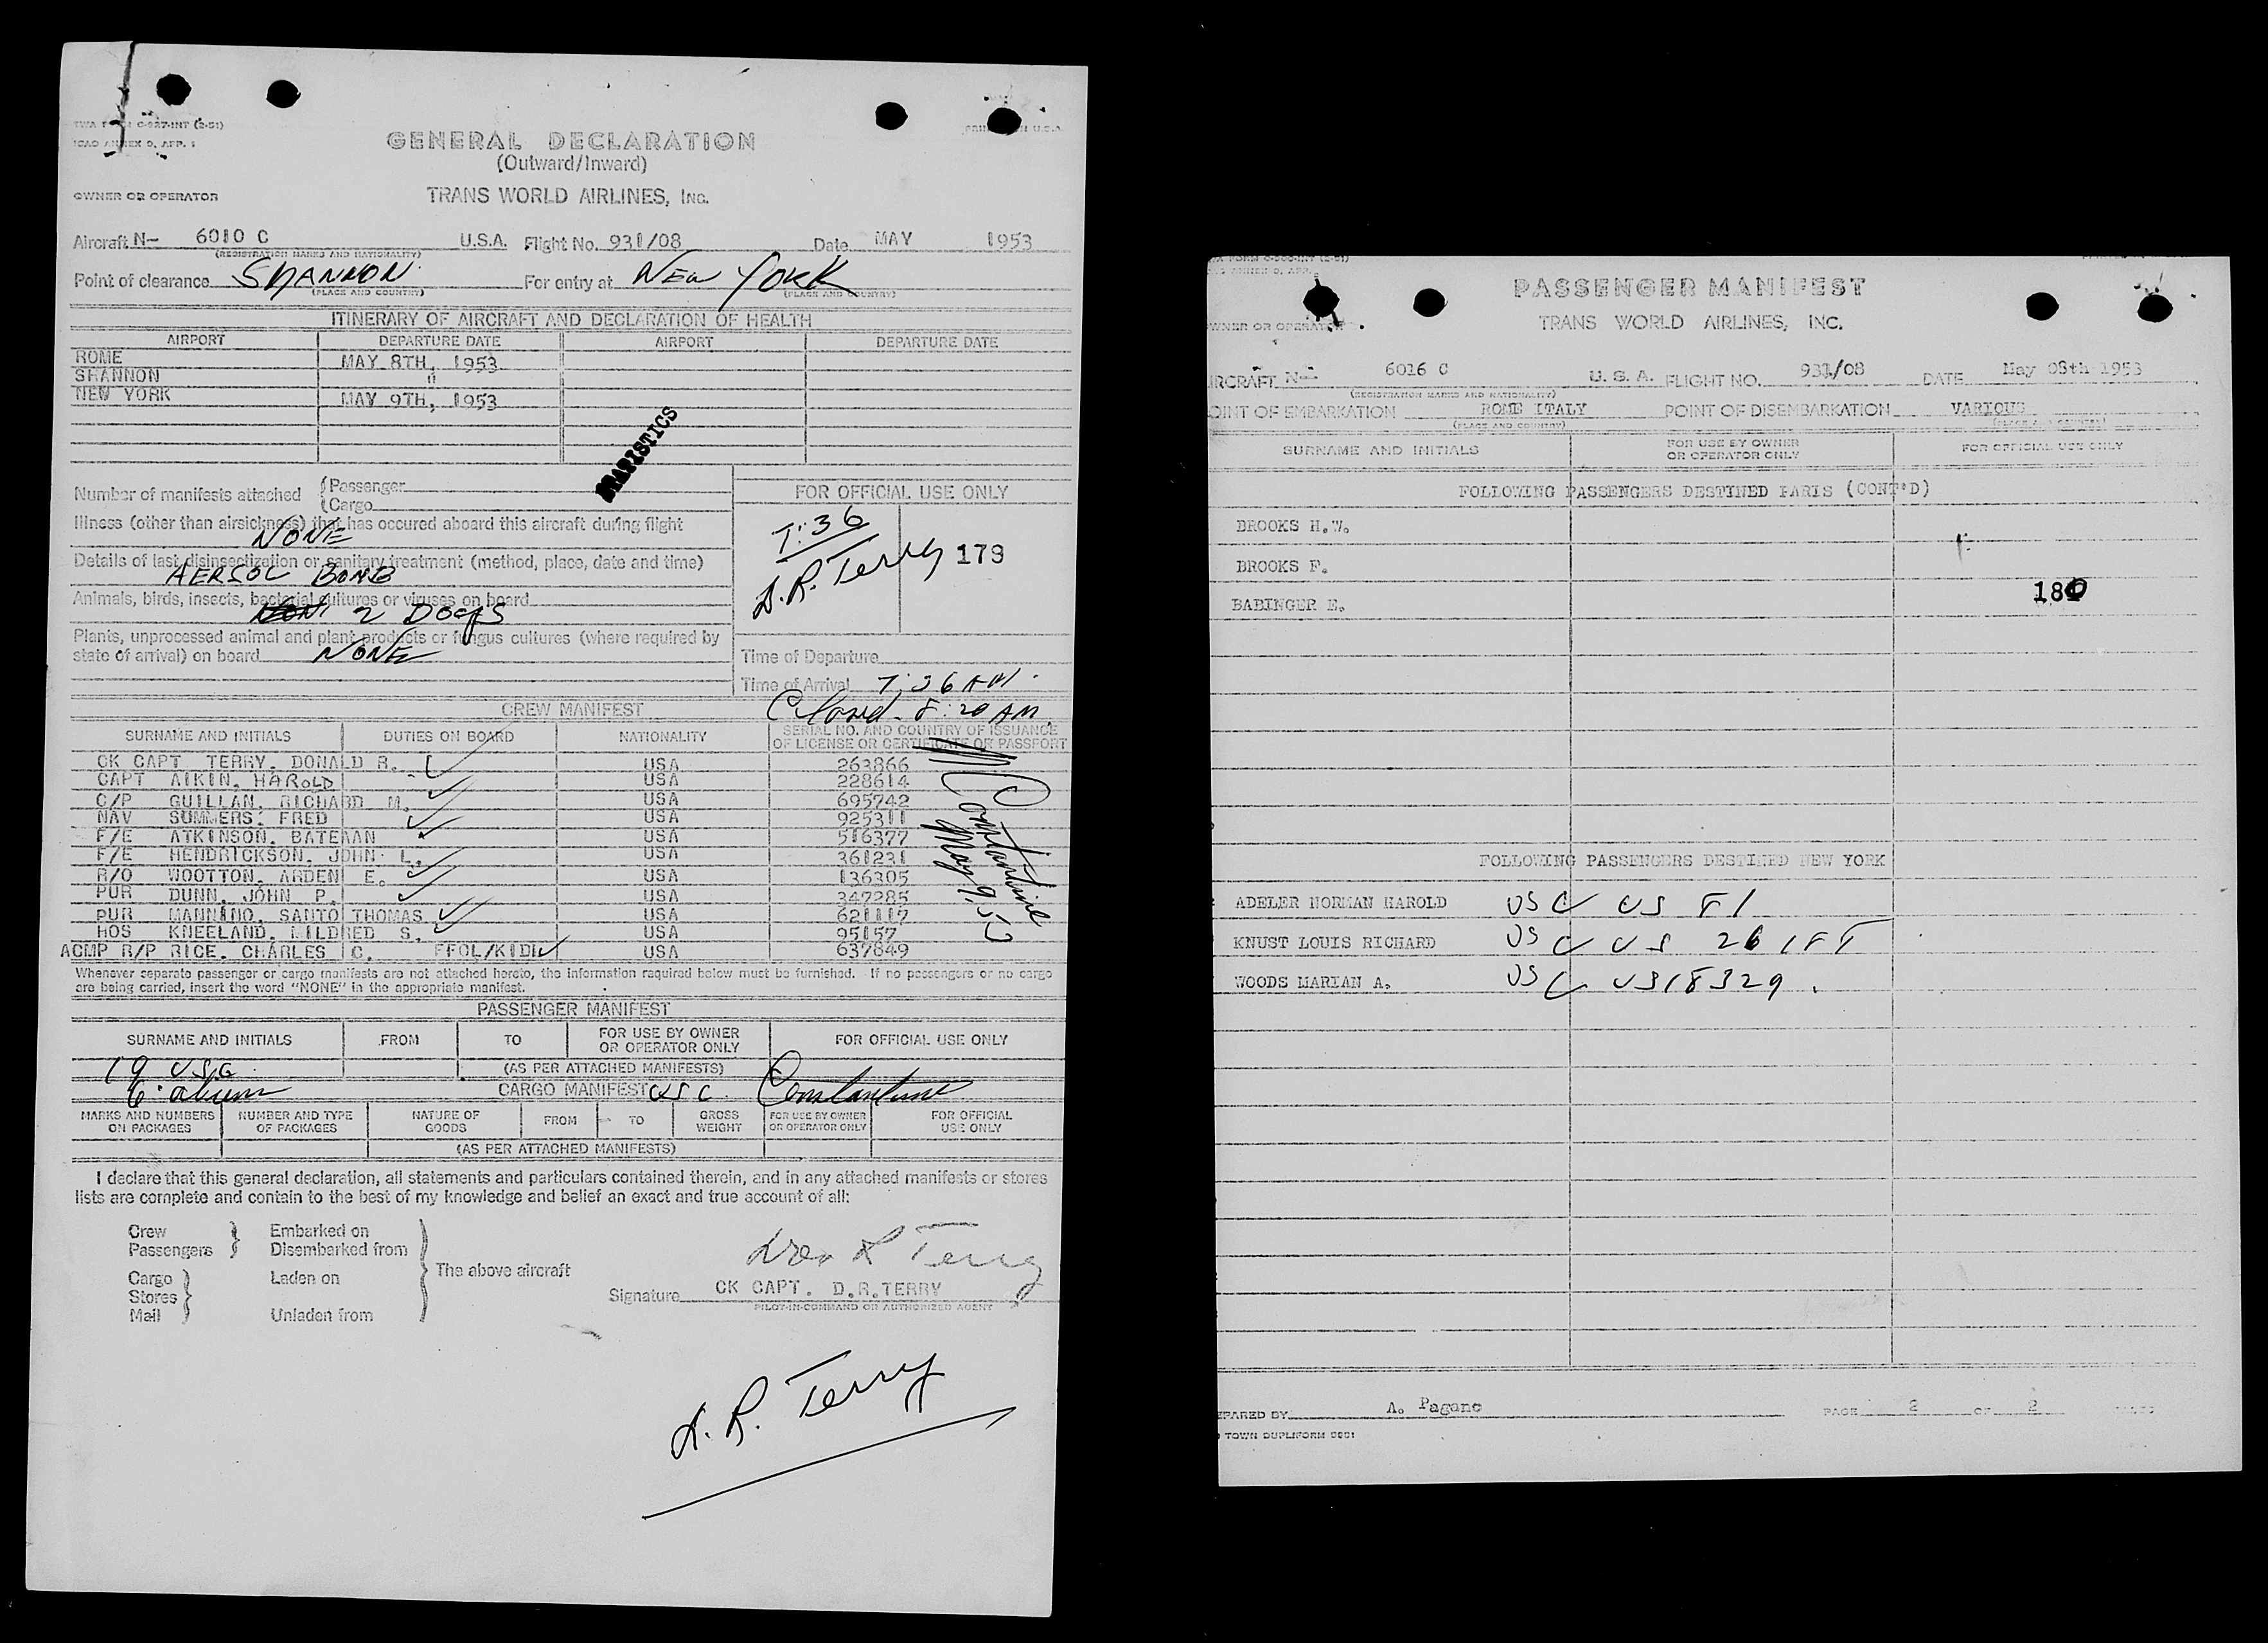 TWA FORM C-527-INT (2-51)
ICAO ANNEX 9, APP. 1
PRINTED IN U.S.A.
GENERAL DECLARATION
(Outward/Inward)
OWNER OR OPERATOR TRANS WORLD AIRLINES, INC.
Aircraft N- 6010 C U.S.A. Flight No. 931/08 Date MAY 1953
(REGISTRATION MARKS AND NATIONALITY)
Point of clearance SHANNON For entry at NEW YORK
(PLACE AND COUNTRY) (PLACE AND COUNTRY)
ITINERARY OF AIRCRAFT AND DECLARATION OF HEALTH
AIRPORT DEPARTURE DATE AIRPORT DEPARTURE DATE
ROME MAY 8TH, 1953
SHANNON "
NEW YORK MAY 9TH, 1953
Number of manifests attached { Passenger
{ Cargo
FOR OFFICIAL USE ONLY
Illness (other than airsickness) that has occured aboard this aircraft during flight
NONE
7:36
D.R. Terry 179
Details of last disinsectization or sanitary treatment (method, place, date and time)
AERSOL BOMB
Animals, birds, insects, bacterial cultures or viruses on board
2 DOGS
Plants, unprocessed animal and plant products or fungus cultures (where required by
state of arrival) on board NONE
Time of Departure
Time of Arrival 7:36 AM.
Closed - 8:20 AM.
CREW MANIFEST
SURNAME AND INITIALS DUTIES ON BOARD NATIONALITY SERIAL NO. AND COUNTRY OF ISSUANCE
OF LICENSE OR CERTIFICATE OR PASSPORT
CK CAPT TERRY, DONALD R. USA 263866
CAPT AIKIN, HAROLD USA 228614
C/P GUILLAN, RICHARD M. USA 695742
NAV SUMMERS, FRED USA 925311
F/E ATKINSON, BATEMAN USA 516377
F/E HENDRICKSON, JOHN L. USA 361231
R/O WOOTTON, ARDEN E. USA 136305
PUR DUNN, JOHN P. USA 347285
PUR MANNINO, SANTO THOMAS USA 621117
HOS KNEELAND, MILDRED S. USA 95157
ACMP R/P RICE, CHARLES C. FFOL/KIDW USA 637849
M Constantine
May 9, 53
Whenever separate passenger or cargo manifests are not attached hereto, the information required below must be furnished. If no passengers or no cargo
are being carried, insert the word "NONE" in the appropriate manifest.
PASSENGER MANIFEST
SURNAME AND INITIALS FROM TO FOR USE BY OWNER
OR OPERATOR ONLY FOR OFFICIAL USE ONLY
19 USC
(AS PER ATTACHED MANIFESTS)
6 aliens CARGO MANIFEST USC Constantine
MARKS AND NUMBERS
ON PACKAGES NUMBER AND TYPE
OF PACKAGES NATURE OF
GOODS FROM TO GROSS
WEIGHT FOR USE BY OWNER
OR OPERATOR ONLY FOR OFFICIAL
USE ONLY
(AS PER ATTACHED MANIFESTS)
I declare that this general declaration, all statements and particulars contained therein, and in any attached manifests or stores
lists are complete and contain to the best of my knowledge and belief an exact and true account of all:
Crew } Embarked on
Passengers } Disembarked from
Cargo } Laden on
Stores }
Mail } Unladen from
The above aircraft
Signature CK CAPT. D.R.TERRY
PILOT-IN-COMMAND OR AUTHORIZED AGENT
D.R. Terry
PASSENGER MANIFEST
OWNER OR OPERATOR TRANS WORLD AIRLINES, INC.
AIRCRAFT N- 6026 C U. S. A. FLIGHT NO. 931/08 DATE May 08th 1953
(REGISTRATION MARKS AND NATIONALITY)
POINT OF EMBARKATION ROME ITALY POINT OF DISEMBARKATION VARIOUS
(PLACE AND COUNTRY) (PLACE AND COUNTRY)
SURNAME AND INITIALS FOR USE BY OWNER
OR OPERATOR ONLY FOR OFFICIAL USE ONLY
FOLLOWING PASSENGERS DESTINED PARIS (CONT'D)
BROOKS H.W.
BROOKS F.
BABINGER E. 180
FOLLOWING PASSENGERS DESTINED NEW YORK
ADELER NORMAN HAROLD USC US
KNUST LOUIS RICHARD USC US
WOODS MARIAN A. USC US18329
PREPARED BY A. Pagano PAGE 2 OF 2
TOWN DUPLIFORM